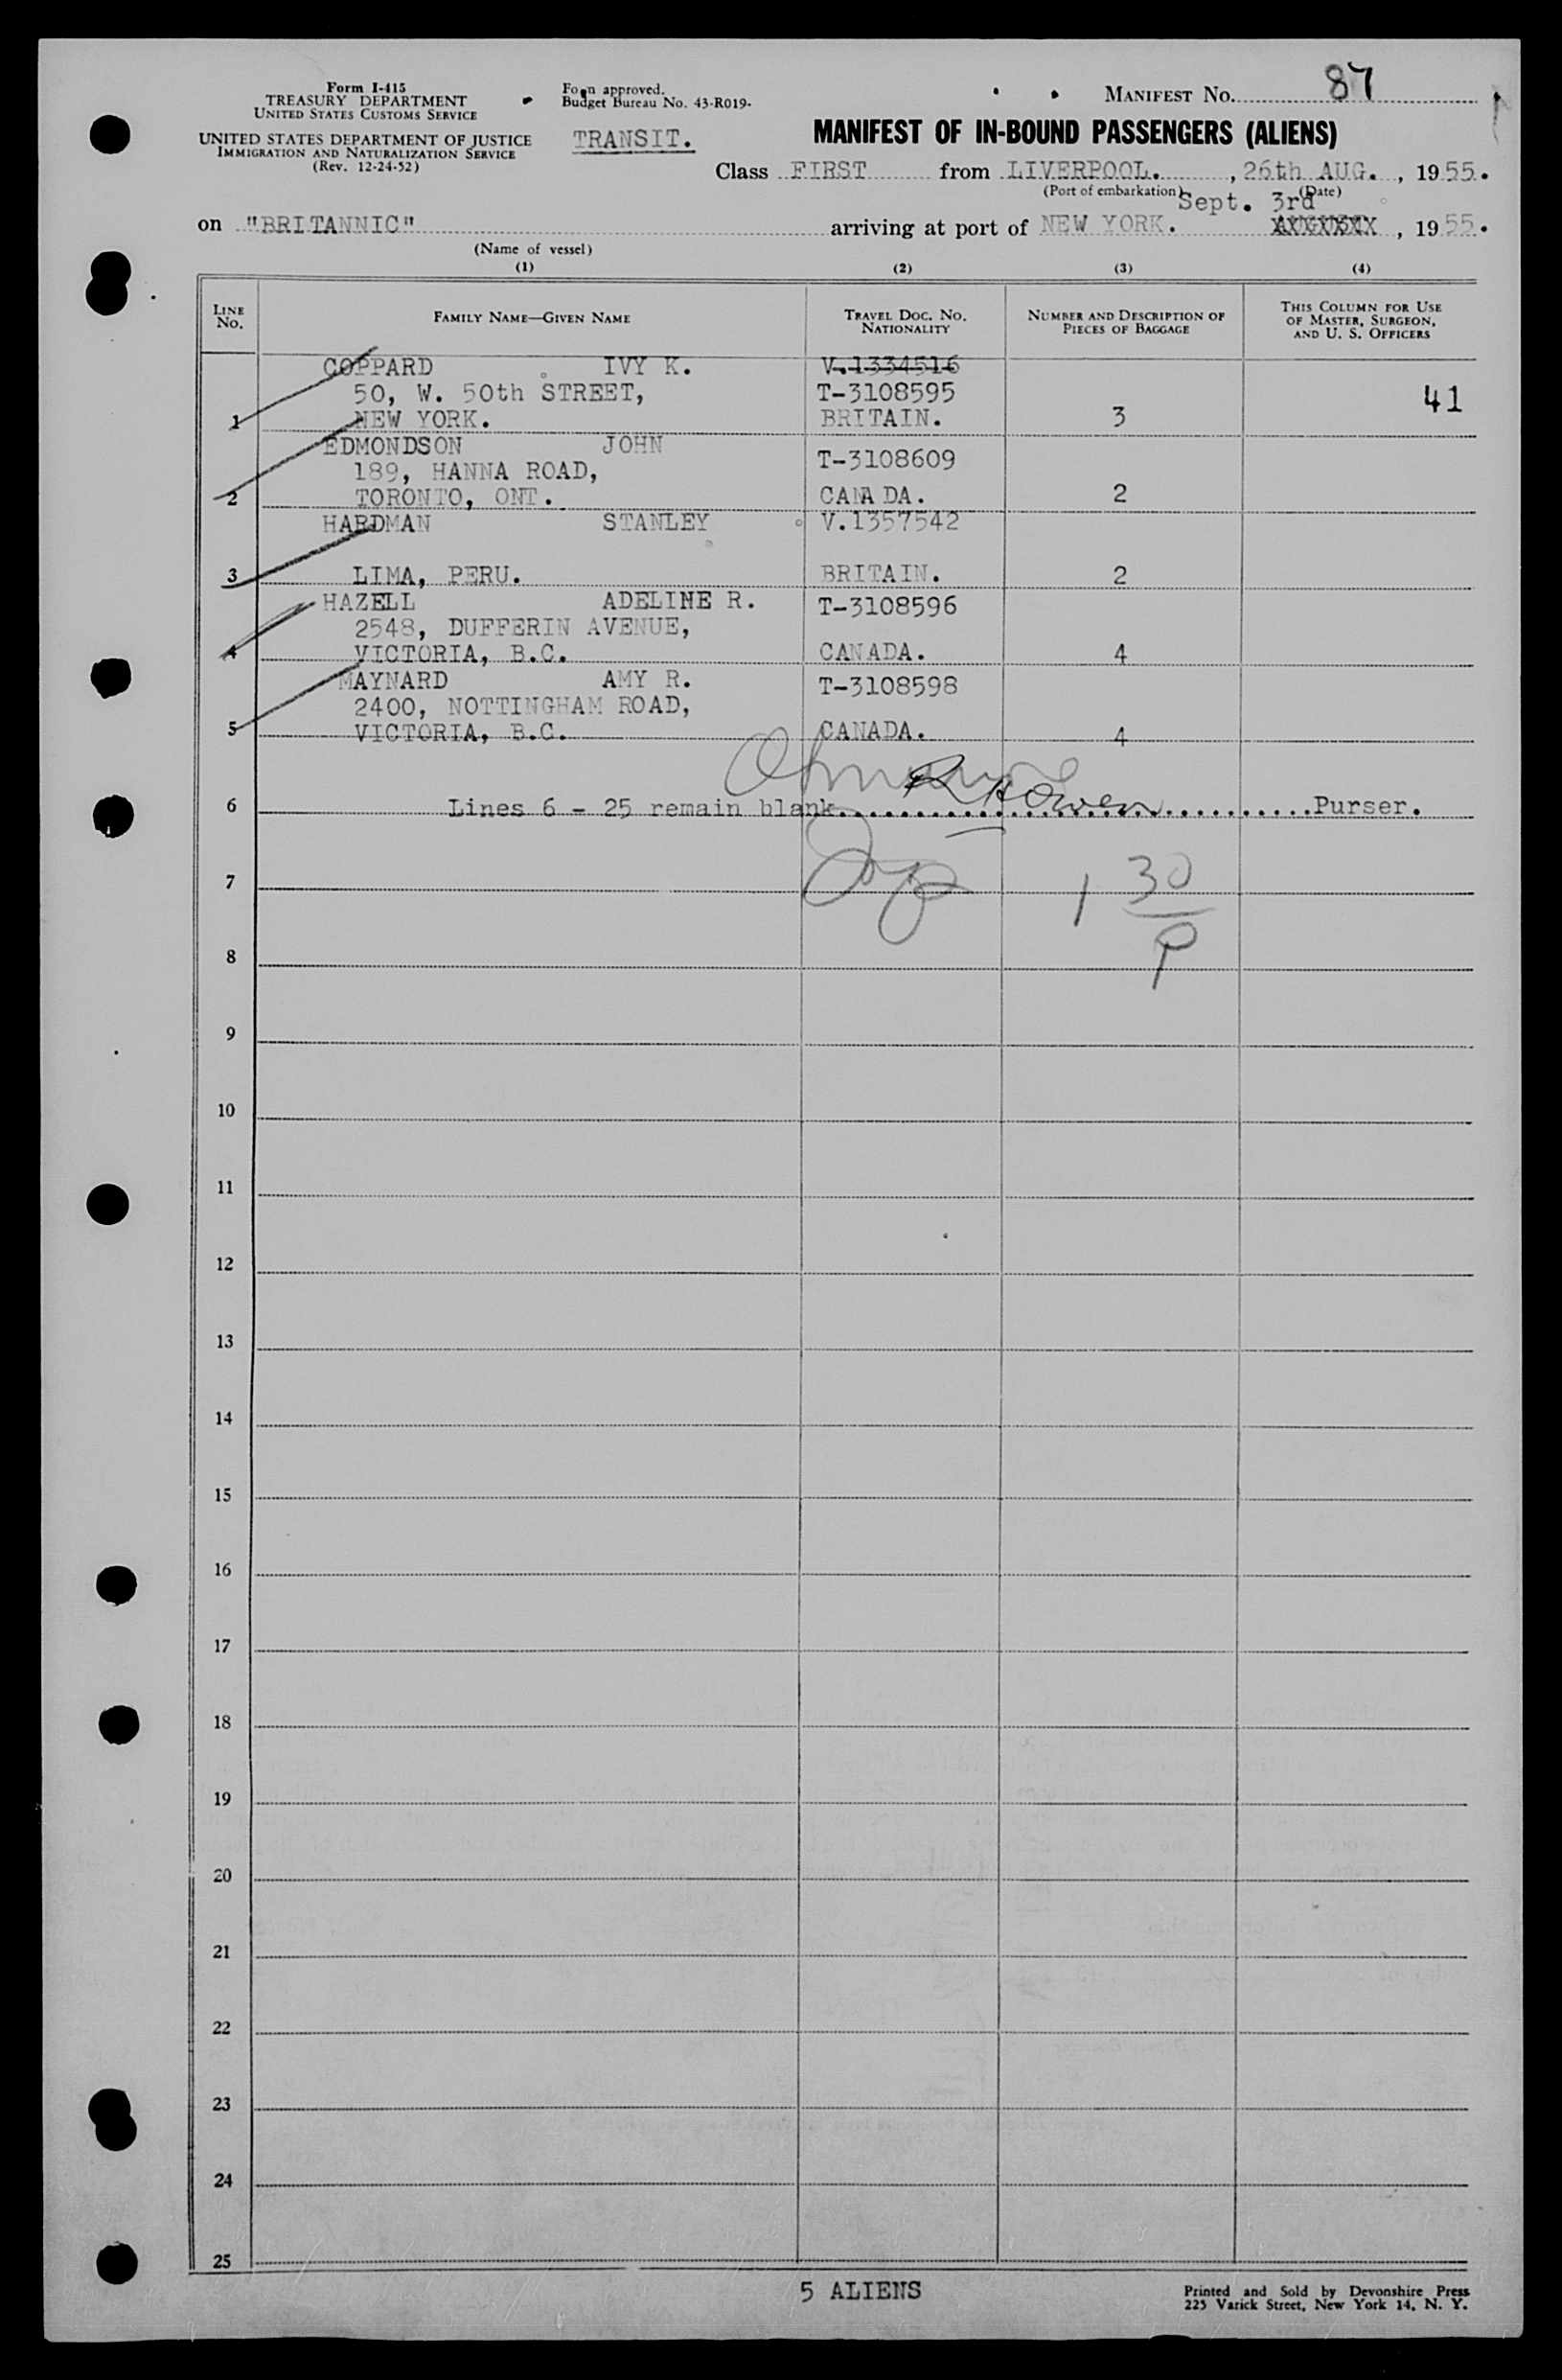 Form I-415
TREASURY DEPARTMENT
UNITED STATES CUSTOMS SERVICE
UNITED STATES DEPARTMENT OF JUSTICE
IMMIGRATION AND NATURALIZATION SERVICE
(Rev. 12-24-52)
Form approved.
Budget Bureau No. 43-R019-
TRANSIT.
MANIFEST NO. 87
MANIFEST OF IN-BOUND PASSENGERS (ALIENS)
Class FIRST from LIVERPOOL. , 26th AUG. , 1955.
(Port of embarkation) (Date)
Sept. 3rd
on "BRITANNIC" arriving at port of NEW YORK. , 1955.
(Name of vessel)
(1) (2) (3) (4)
LINE NO. FAMILY NAME—GIVEN NAME TRAVEL DOC. NO. NATIONALITY NUMBER AND DESCRIPTION OF PIECES OF BAGGAGE THIS COLUMN FOR USE OF MASTER, SURGEON, AND U. S. OFFICERS
COPPARD IVY K. V.1334516
50, W. 50th STREET, T-3108595 41
1 NEW YORK. BRITAIN. 3
EDMONDSON JOHN T-3108609
189, HANNA ROAD,
2 TORONTO, ONT. CANADA. 2
HARDMAN STANLEY V.1357542
3 LIMA, PERU. BRITAIN. 2
HAZELL ADELINE R. T-3108596
2548, DUFFERIN AVENUE,
4 VICTORIA, B.C. CANADA. 4
MAYNARD AMY R. T-3108598
2400, NOTTINGHAM ROAD,
5 VICTORIA, B.C. CANADA. 4
6 Lines 6 - 25 remain blank. R H Owen Purser.
7 1 30
8
9
10
11
12
13
14
15
16
17
18
19
20
21
22
23
24
25
5 ALIENS
Printed and Sold by Devonshire Press
225 Varick Street, New York 14, N. Y.